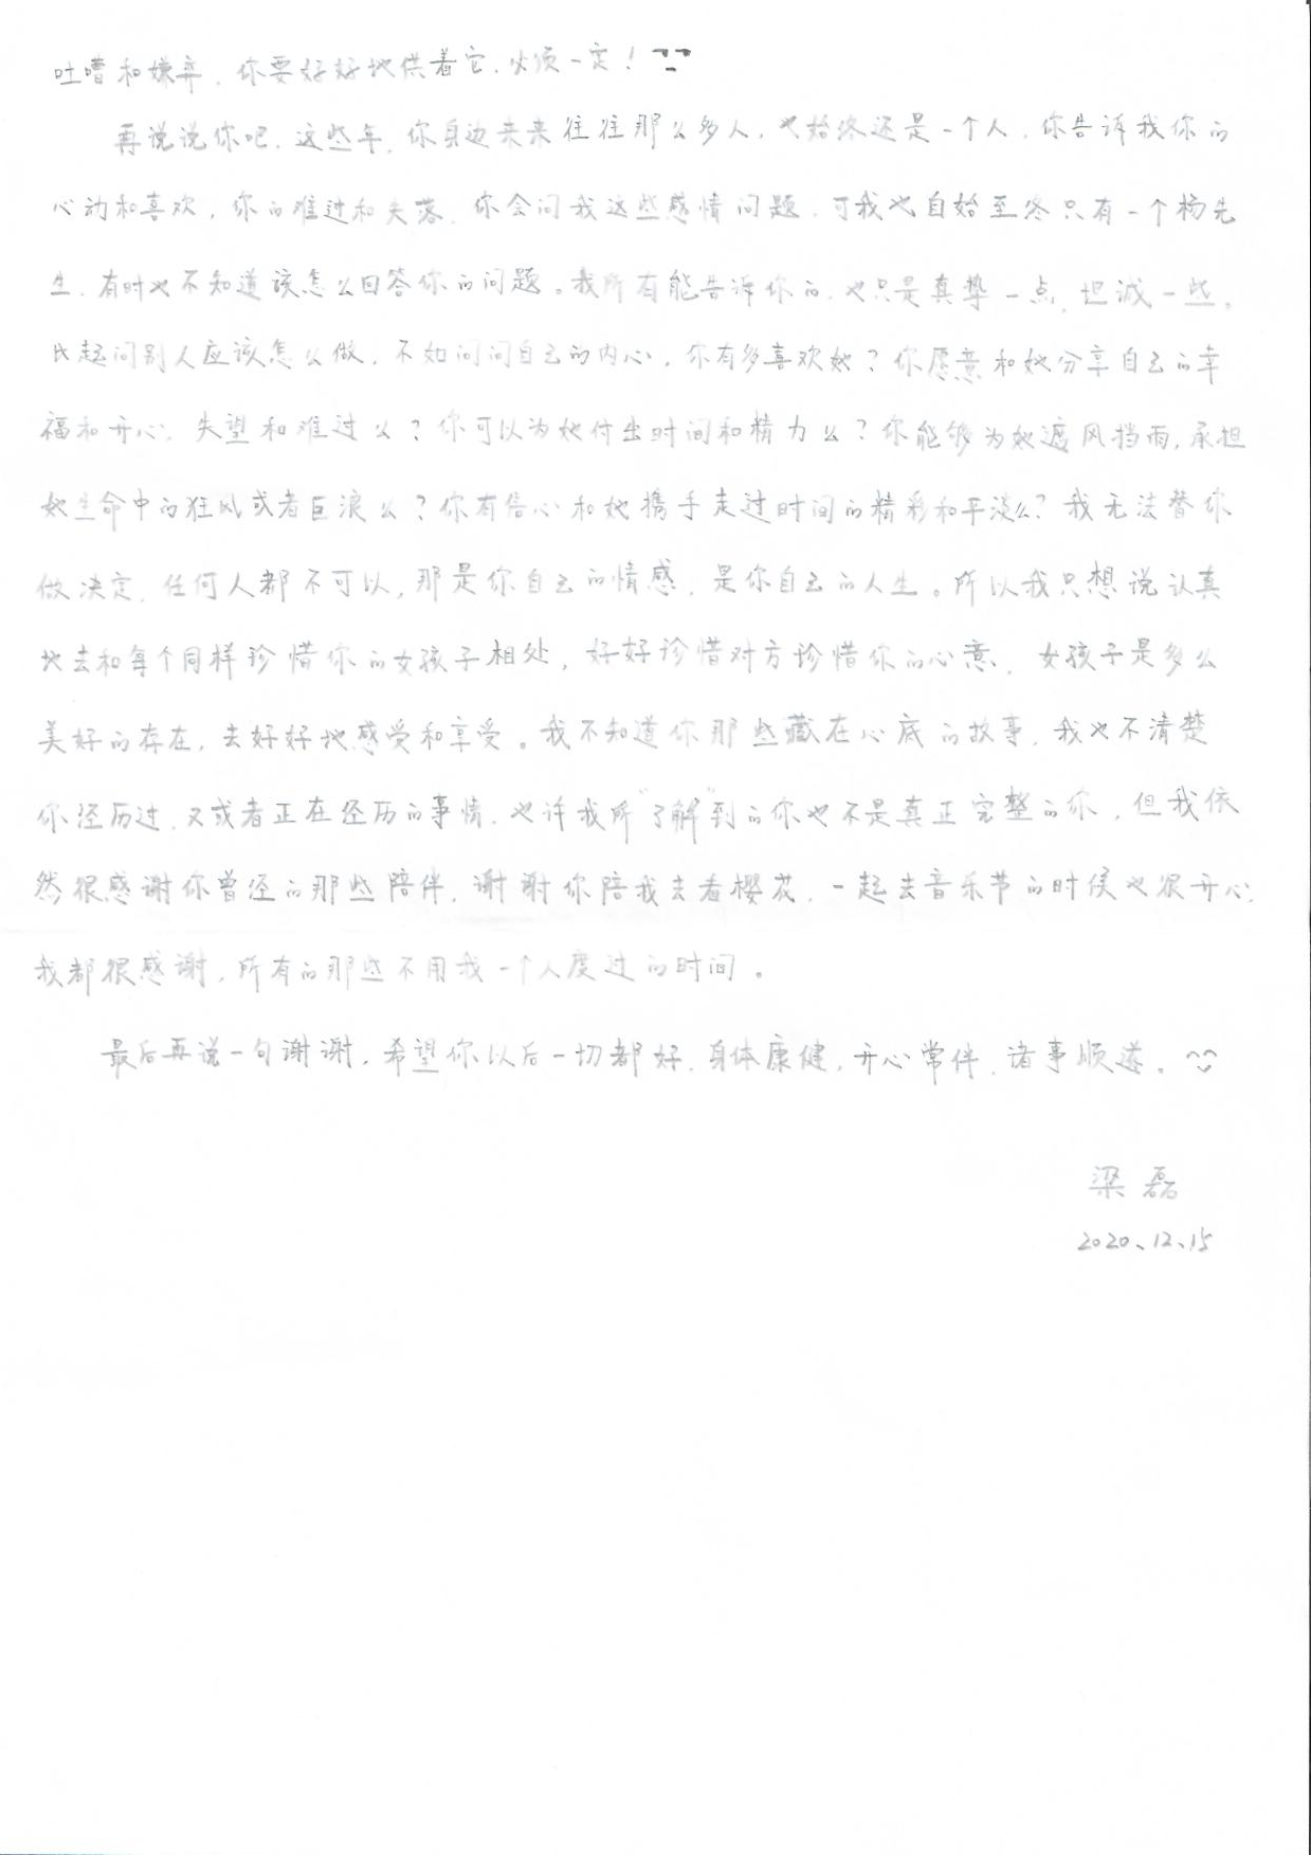 吐嘈和嫌弃，你要好好地供着它，必须一定！
再说说你吧，这些年，你身边来来往往那么多人，也始终还是一个人，你告诉我你的
心动和喜欢，你的难过和失落，你会问我这些感情问题，可我也自始至终只有一个杨先
生，有时也不知道该怎么回答你的问题。我所有能告诉你的，也只是真挚一点，坦诚一些，
比起问别人应该怎么做，不如问问自己的内心，你有多喜欢她？你愿意和她分享自己的幸
福和开心，失望和难过么？你可以为她付出时间和精力么？你能够为她遮风挡雨，承担
她生命中的狂风或者巨浪么？你有信心和她携手走过时间的精彩和平淡么？我无法替你
做决定，任何人都不可以，那是你自己的情感，是你自己的人生。所以我只想说认真
地去和每个同样珍惜你的女孩子相处，好好珍惜对方珍惜你的心意，女孩子是多么
美好的存在，去好好地感受和享受。我不知道你那些藏在心底的故事，我也不清楚
你经历过，又或者正在经历的事情，也许我所“了解”到的你也不是真正完整的你，但我依
然很感谢你曾经的那些陪伴，谢谢你陪我去看樱花，一起去音乐节的时候也很开心，
我都很感谢，所有的那些不用我一个人度过的时间。
最后再说一句谢谢，希望你以后一切都好，身体康健，开心常伴，诸事顺遂。
梁磊
2020、12、15